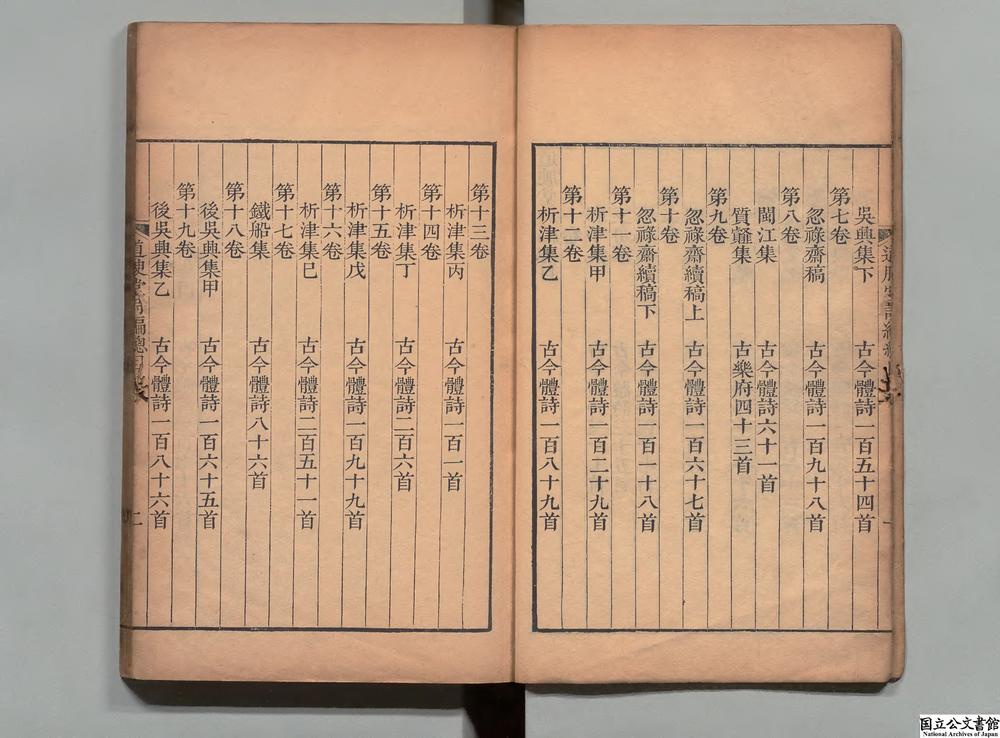 吳興集下 古今體詩一百五十四首
第七卷
忽祿齋稿 古今體詩一百九十八首
第八卷
閩江集 古今體詩六十一首
質龕集 古樂府四十三首
第九卷
忽祿齋續稿上 古今體詩一百六十七首
第十卷
忽祿齋續稿下 古今體詩一百一十八首
第十一卷
析津集甲 古今體詩一百二十九首
第十二卷
析津集乙 古今體詩一百八十九首
第十三卷
析津集丙 古今體詩一百一首
第十四卷
析津集丁 古今體詩二百六首
第十五卷
析津集戊 古今體詩一百九十九首
第十六卷
析津集巳 古今體詩二百五十一首
第十七卷
鐵船集 古今體詩八十六首
第十八卷
後吳興集甲 古今體詩一百六十五首
第十九卷
後吳興集乙 古今體詩一百八十六首
道腴堂詩編總目 二
国立公文書館
National Archives of Japan